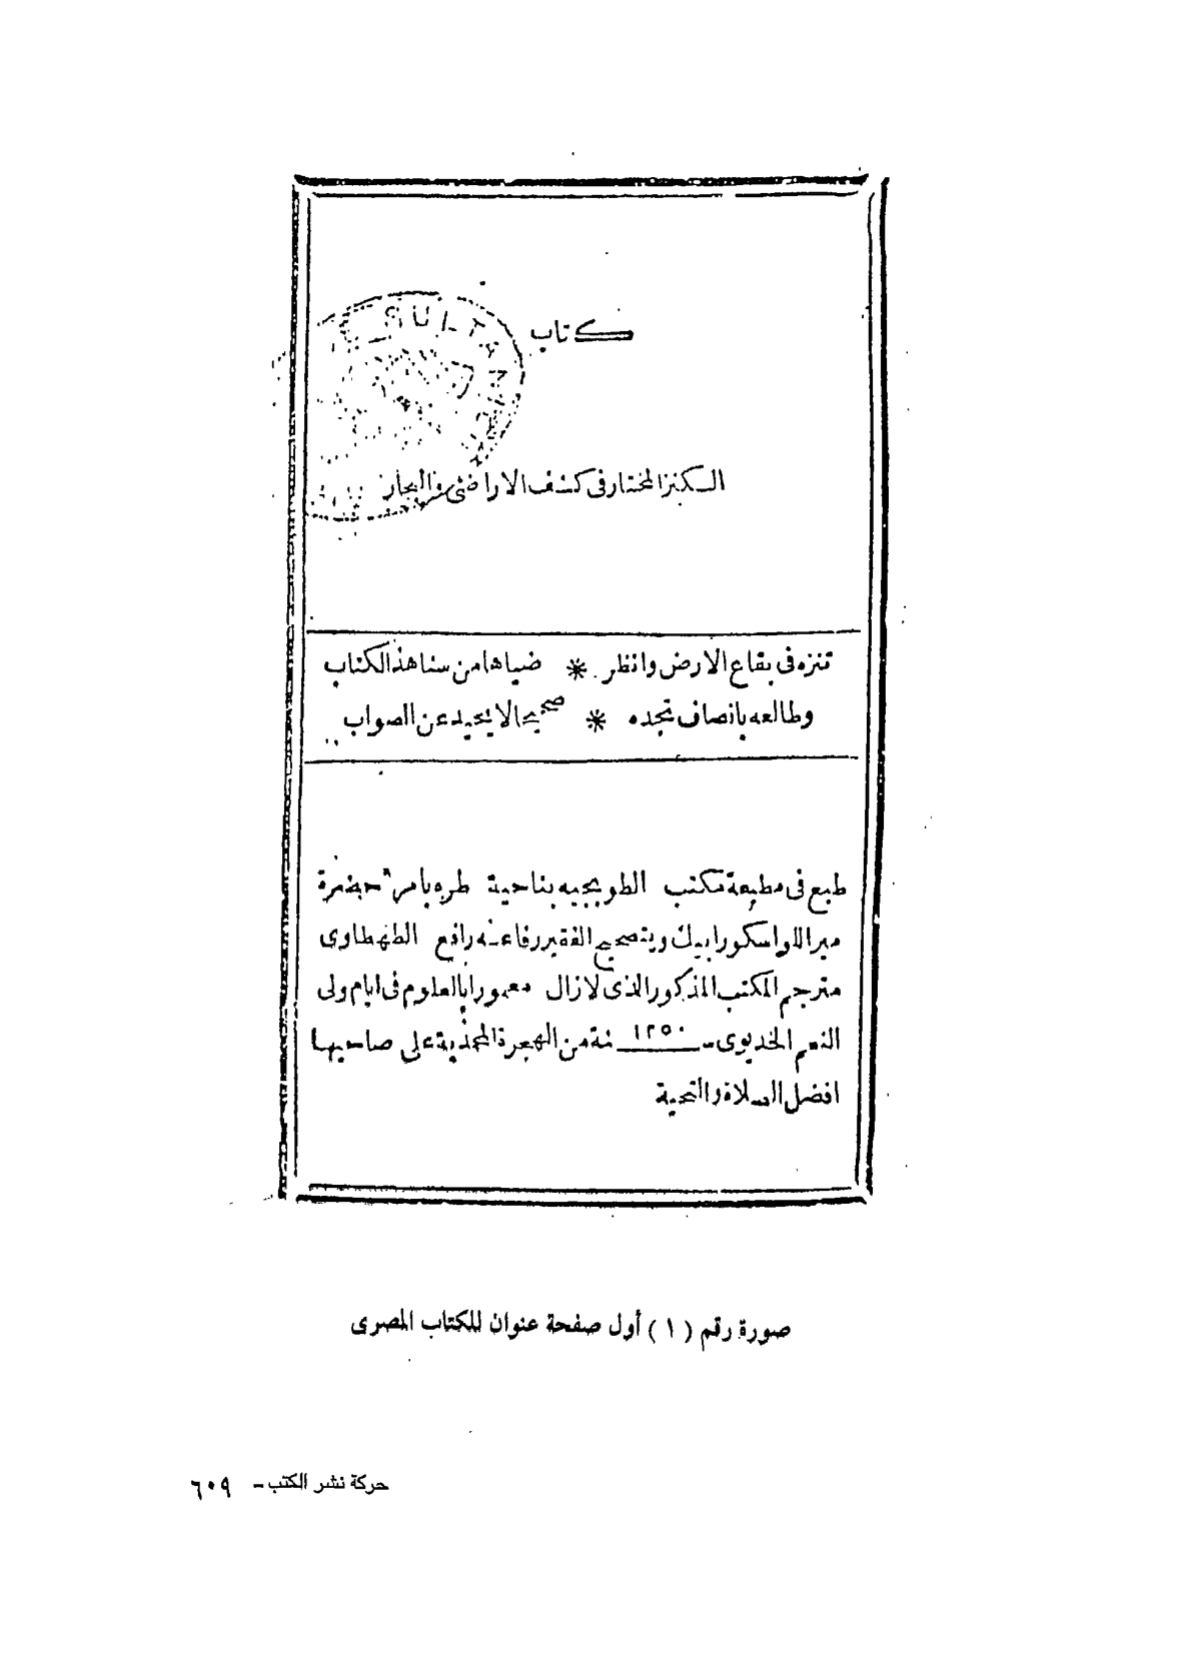 كتاب
SULTAN
الكنز المختار فى كشف الاراضى والبحار
تنزه فى بقاع الارض وانظر * ضياها من سنا هذ الكتاب
وطالعه بانصاف تجده * صحيحا لا يحيد عن الصواب
طبع فى مطبعة مكتب الطوبجيه بناحية طره بامر حضرة
مير اللوا سكورا بيك وبتصحيح الفقير رفاعه رافع الطهطاوى
مترجم المكتب المذكور الذى لازال معمورا بالعلوم فى ايام ولى
النعم الخديوى سنة ١٢٥٠ من الهجرة المحمدية على صاحبها
افضل الصلاة والتحية
صورة رقم (١) أول صفحة عنوان للكتاب المصرى
حركة نشر الكتب - ٦٠٩